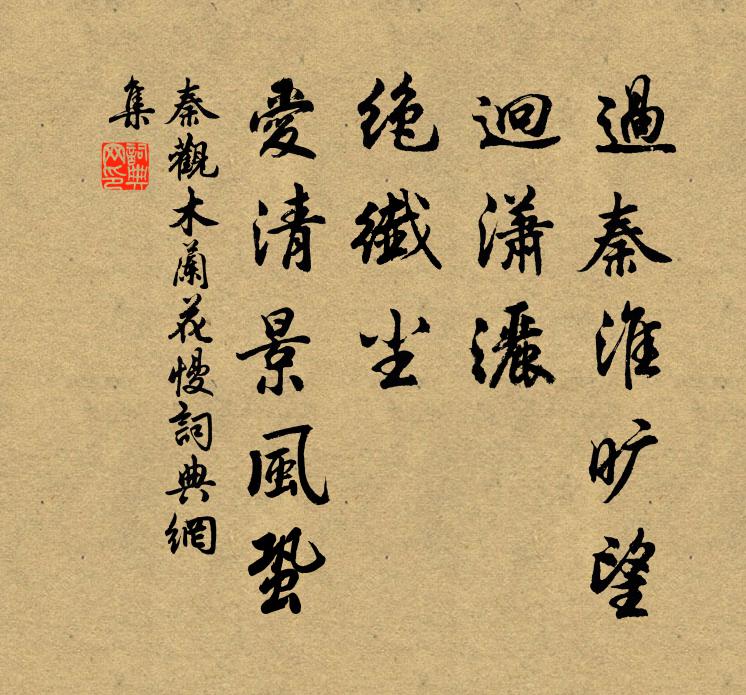 過秦淮旷望
迥瀟灑
絶纖尘
愛清景風蛩
秦觀木蘭花慢詞典網
集
詞典網印